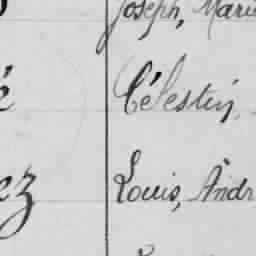 Joseph, Marie
é Célestin,
ez Louis, Andr